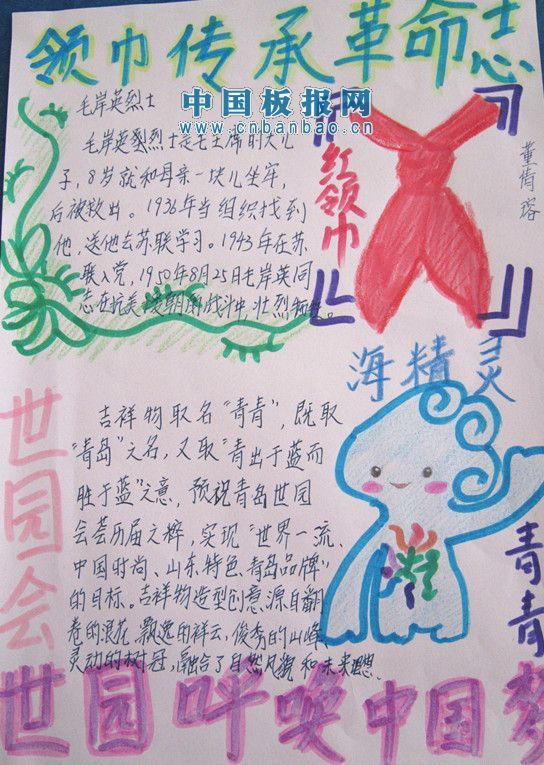 领巾传承革命志
中国板报网
www.cnbanbao.cn
毛岸英烈士
毛岸英烈士是毛主席的大儿
子，8岁就和母亲一块儿坐牢，
后被救出。1936年当组织找到
他，送他去苏联学习。1943年在苏
联入党，1950年8月25日毛岸英同
志在抗美援朝的战斗中，壮烈牺牲。
红领巾
董倩瑢
海精灵
青青
世园会
吉祥物取名“青青”，既取
“青岛”之名，又取“青出于蓝而
胜于蓝”之意，预祝青岛世园
会荟历届之粹，实现“世界一流、
中国时尚、山东特色、青岛品牌”
的目标。吉祥物造型创意源自翻
卷的浪花、飘逸的祥云，俊秀的山峰，
灵动的树冠，融合了自然风貌和未来理想.
世园呼唤中国梦